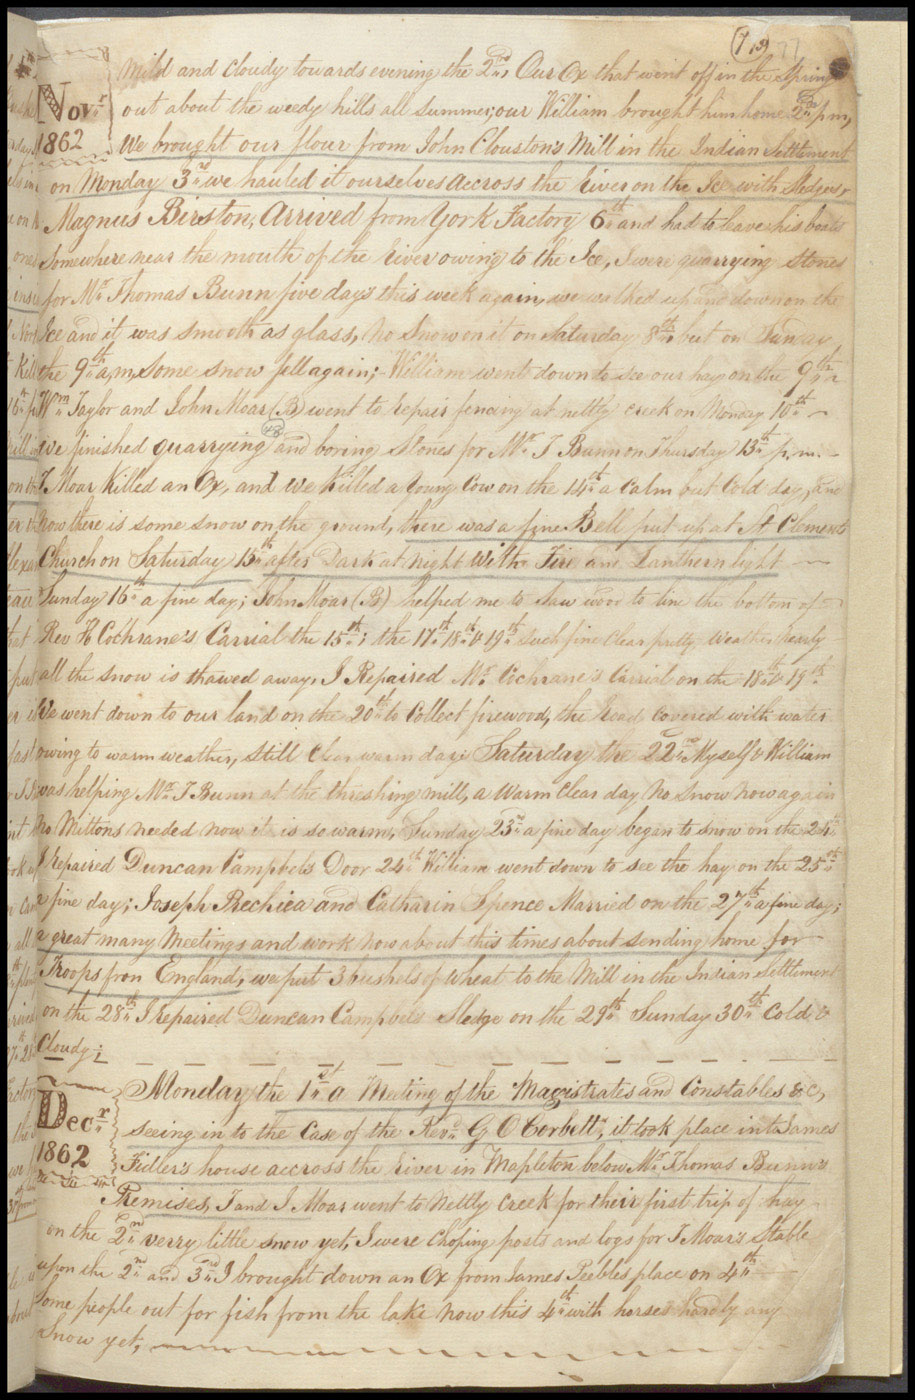 (79) 77
mild and cloudy towards evening the 2nd, Our Ox that went off in the Spring
Novr out about the weedy hills all summer; our William brought him home 2nd p,m,
1862 We brought our flour from John Clouston's Mill in the Indian Settlment
on Monday 3rd we hauled it ourselves accross the River on the Ice with Sledges,
Magnus Birston, Arrived from York Factory 6th and had to leave his boats
Somewhere near the mouth of the River owing to the Ice, I were quarrying stones
for Mr Thomas Bunn five days this week again, we walked up and down on the
Ice and it was smooth as glass, no Snow on it on Saturday 8th but on Sunday
the 9th a,m, Some snow fell again; William went down to see our hay on the 9th
Wm Taylor and John Moar (B) went to repair fencing at nettly creek on Monday 10th
48
We finished quarrying and boring Stones for Mr T Bunn on Thursday 13th p.m.
J Moar Killed an Ox, and we Killed a young Cow on the 14th a Calm but Cold day, and
now there is some snow on the ground, there was a fine Bell put up at St Clements
Church on Saturday 15th after Dark at night with Fire and Lanthern light
Sunday 16th a fine day; John Moar (B) helped me to Saw wood to line the bottom of
Rev H Cochrane's Carrial the 15th; the 17th 18th & 19th Such fine Clear pretty weather nearly
all the snow is thawed away, I Repaired Mr Cochrane's Carrial on the 18th & 19th
We went down to our land on the 20th to Collect firewood, the Road Covered with water
owing to warm weather, Still Clear warm days Saturday the 22nd Myself & William
was helping Mr T Bunn at the threshing mill, a warm Clear day No Snow now again
no Mittons needed now it is so warm, Sunday 23rd a fine day began to snow on the 24th
I repaired Duncan Campbels Door 24th William went down to see the hay on the 25th
a fine day; Joseph Rechiea and Catharin Spence Married on the 27th a fine day;
a great many Meetings and work now about this times about sending home for
Troops from England, we put 3 bushels of wheat to the Mill in the Indian Settlment
on the 28th I repaired Duncan Campbels Sledge on the 29th Sunday 30th Cold &
Cloudy;
Monday the 1st a Meeting of the Magistrates and Constables &c,
Decr seeing in to the Case of the Revd G O Corbett, it took place in James
1862 Fidler's house accross the River in Mapleton below Mr Thomas Bunn's
Premises, T and J Moar went to Nettly creek for their first trip of hay
on the 2nd verry little snow yet, I were choping posts and logs for J Moar's Stable
upon the 2nd and 3rd I brought down an Ox from James Peebles place on 4th
Some people out for fish from the lake now this 4th with horses hardly any
Snow yet,